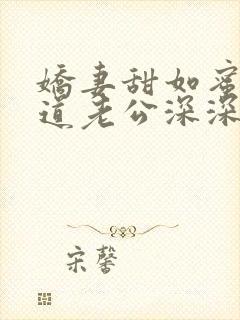 嬌妻甜如蜜
道老公深深
宋馨